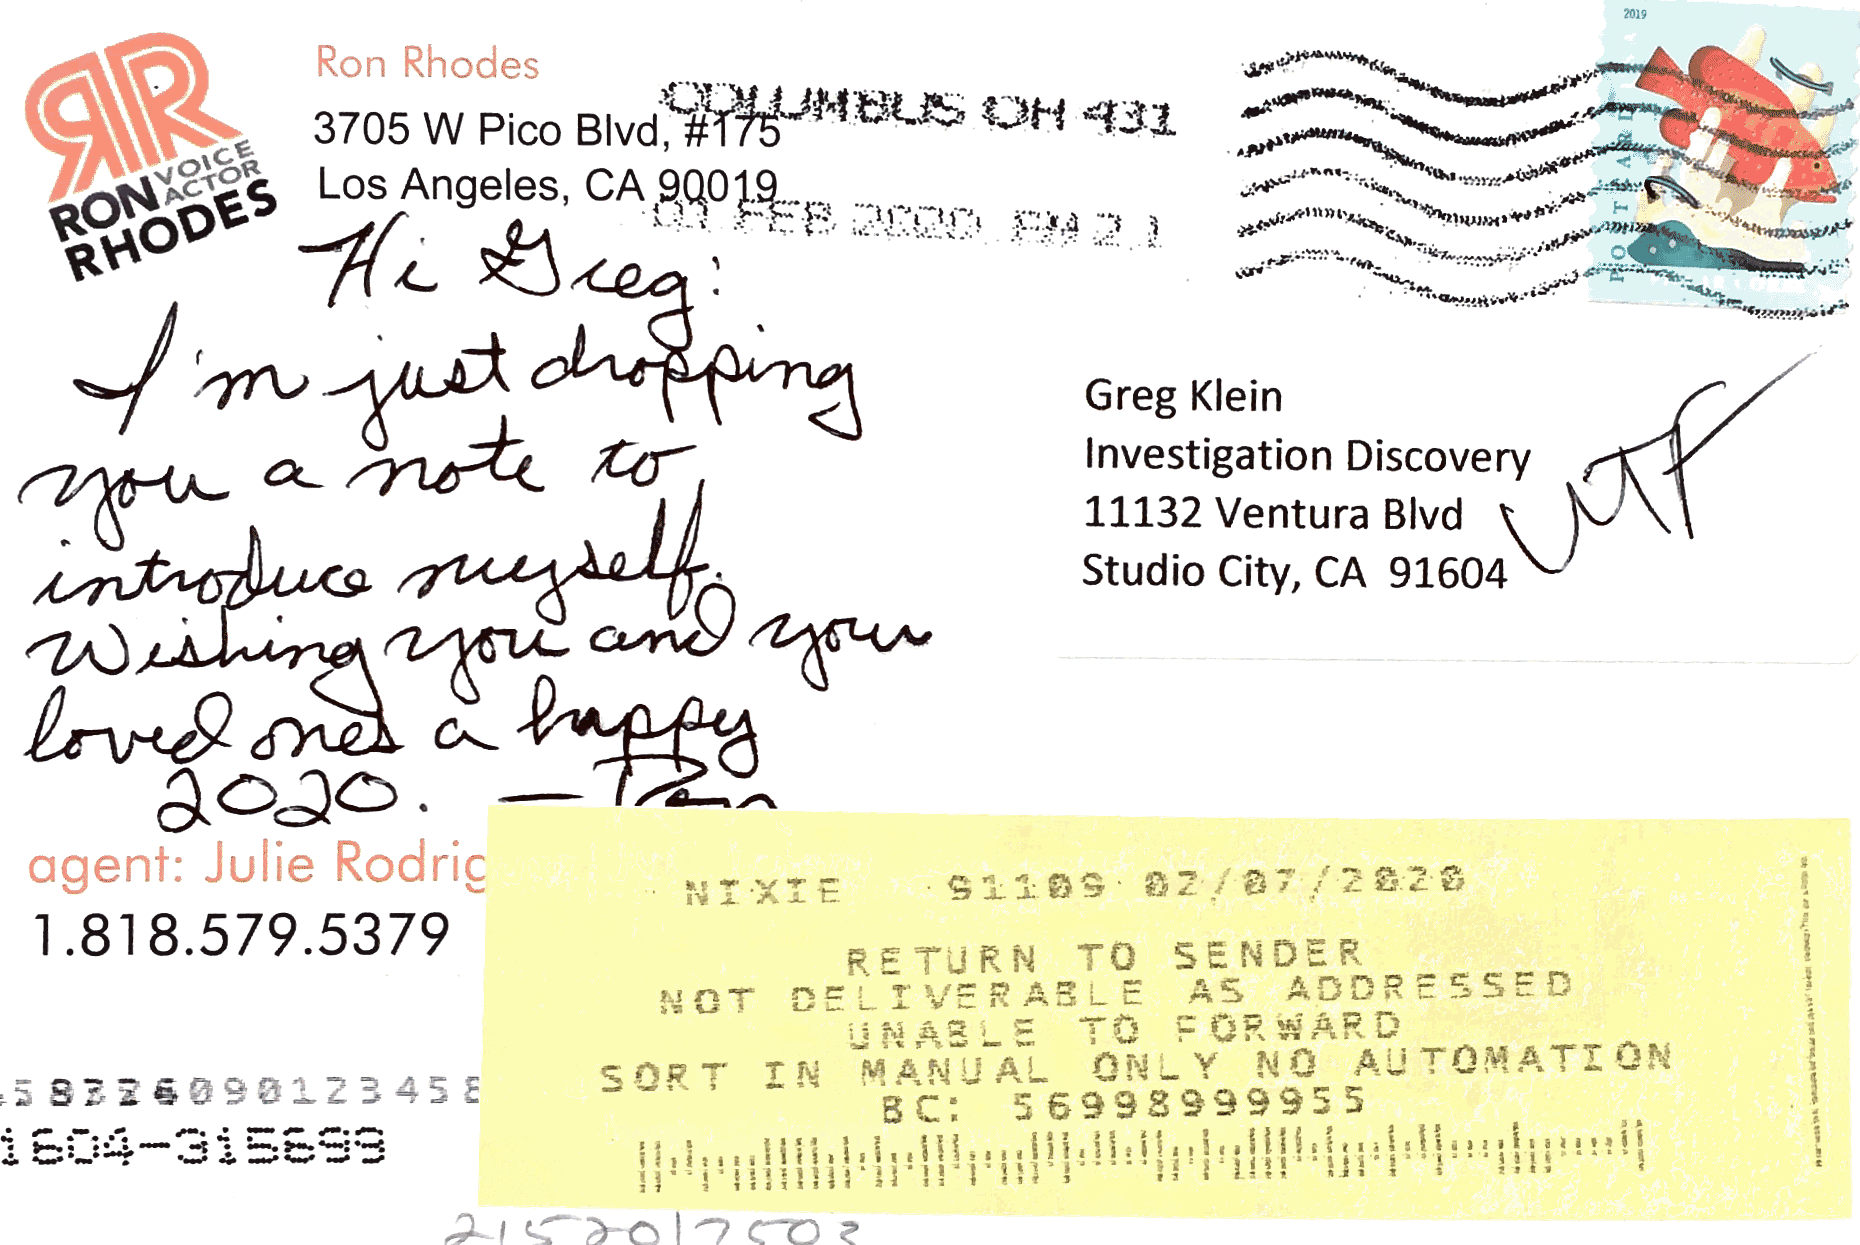 RR
RON VOICE
ACTOR
RHODES
Ron Rhodes
3705 W Pico Blvd, #175
Los Angeles, CA 90019
COLUMBUS OH 431
01 FEB 2020 PM 2 L
2019
POSTCARD
Hi Greg:
I'm just dropping
you a note to
introduce myself.
Wishing you and your
loved ones a happy
2020. — Ron
agent: Julie Rodrig
1.818.579.5379
Greg Klein
Investigation Discovery
11132 Ventura Blvd
Studio City, CA 91604
UTF
NIXIE 91109 02/07/2020
RETURN TO SENDER
NOT DELIVERABLE AS ADDRESSED
UNABLE TO FORWARD
SORT IN MANUAL ONLY NO AUTOMATION
BC: 56998999955
090123458
1604-315699
2152017503